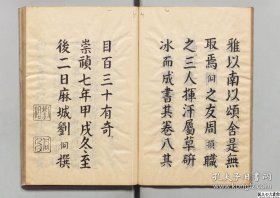 雅以南以頌舍是無
取焉侗之友周損職
之三人揮汗屬草研
冰而成書其卷八其
目百三十有奇
崇禎七年甲戌冬至
後二日麻城劉侗撰